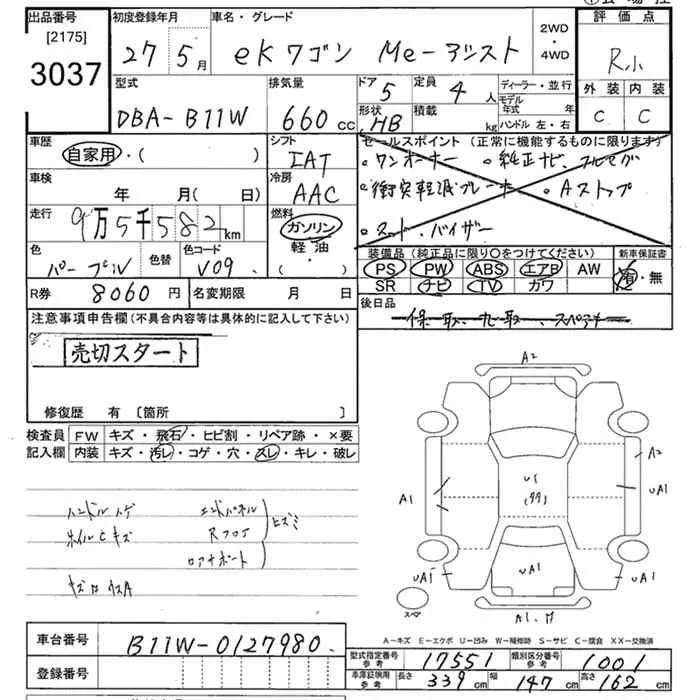 出品番号 初度登録年月 車名・グレード 2WD 評価点
[2175] ・
3037 27年5月 eKワゴン Me-アシスト 4WD R小
型式 排気量 ドア 5 定員 4人 ディーラー・並行 外装 内装
DBA-B11W 660cc 形状 HB 積載 kg モデル年式 年 C C
ハンドル 左・右
車歴 シフト セールスポイント (正常に機能するものに限ります)
自家用・( ) IAT ・ワンオーナー ・純正ナビ、フルセグ
車検 冷房 ・衝突軽減ブレーキ ・Aストップ
年 月( 日) AAC ・スマート・バイザー
走行 燃料
9万5千582km ガソリン
色 色替 色コード 軽油 装備品 (純正品に限り〇をつけてください) 新車保証書
パープル V09 ・( ) PS PW ABS エアB AW 有・無
R券 8060円 名変期限 月 日 SR ナビ TV カワ
注意事項申告欄(不具合内容等は具体的に記入して下さい) 後日品
売切スタート 保、取、ナビ取、スペアキー
修復歴 有 〔箇所 〕
検査員 FW キズ・飛石・ヒビ割・リペア跡・×要
記入欄 内装 キズ・汚レ・コゲ・穴・スレ・キレ・破レ
A2
A2
A1 U1 (99) UA1
ハンドルハゲ エンドパネル
ホイルCキズ Rフロア ヒズミ
ロアサポート
UA1 UA1 UA1
スペア A1.M
A-キズ E-エクボ U-凹み W-補修跡 S-サビ C-腐食 XX-交換済
車台番号 B11W-0127980
登録番号
型式指定番号 参考 17551 類別区分番号 参考 1001
車庫証明用 参考 長さ 339cm 幅 147cm 高さ 162cm